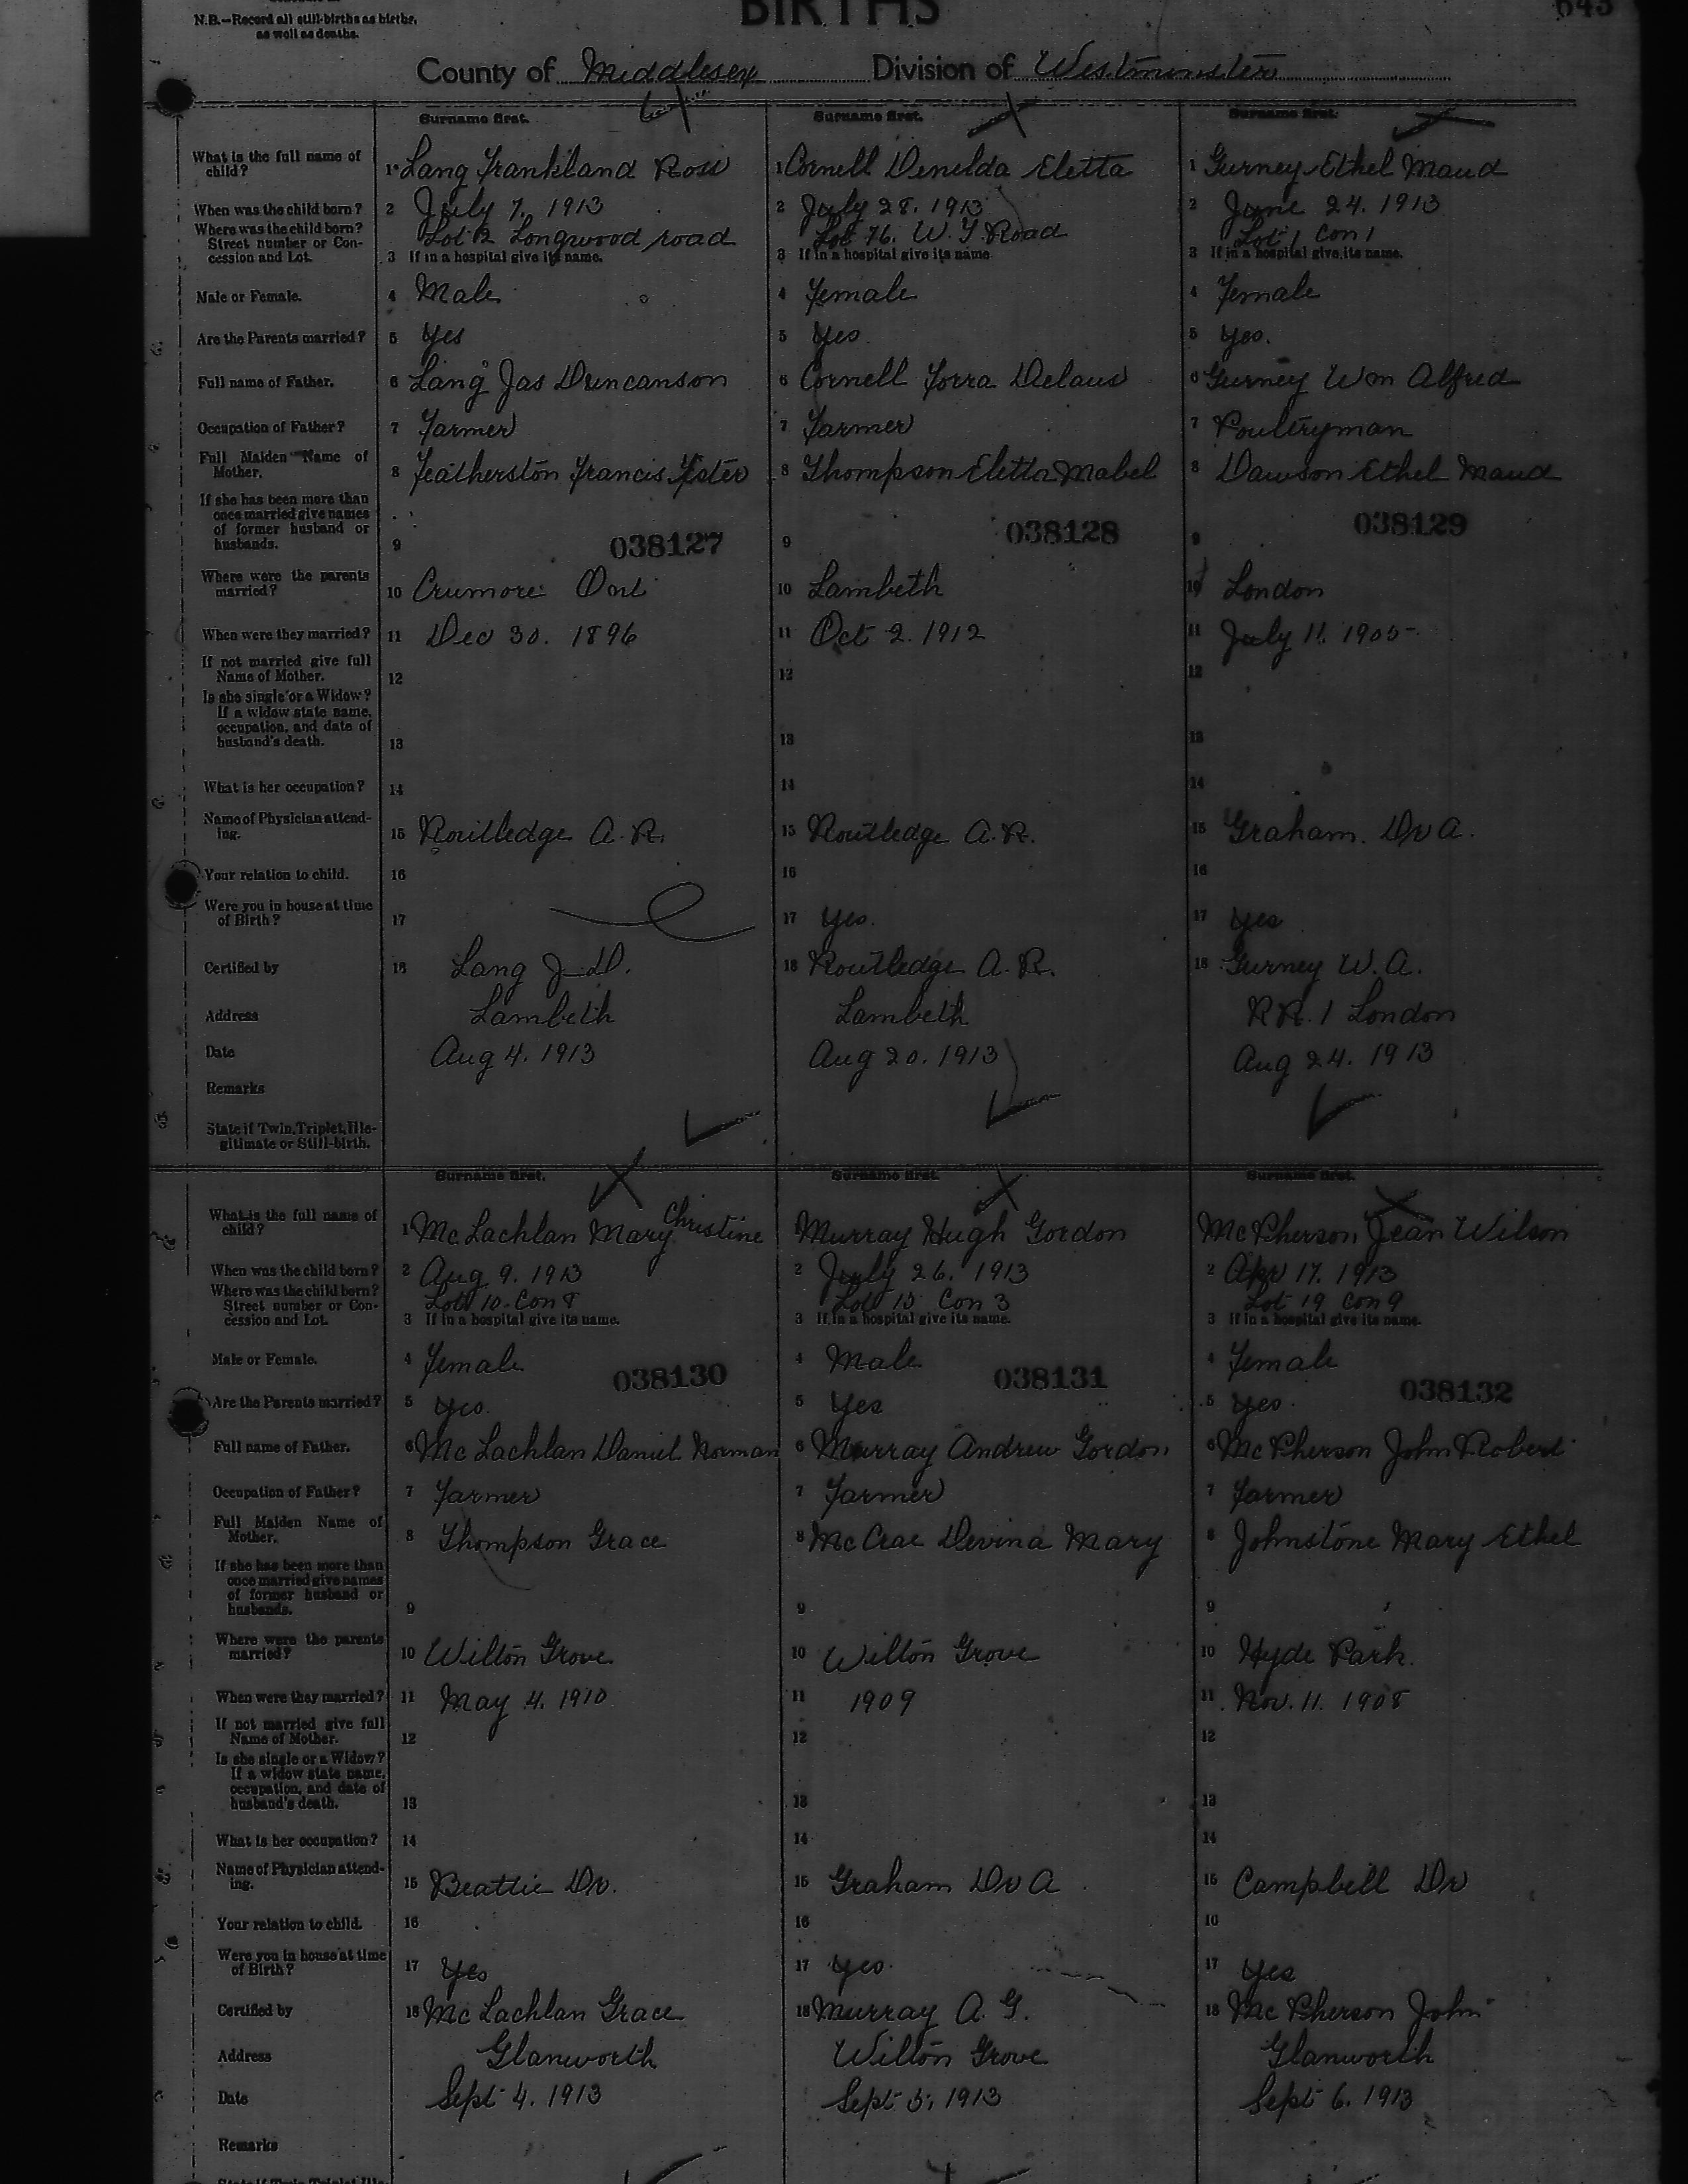 N.B.—Record all still-births as births,
as well as deaths.
BIRTHS
643
County of Middlesex Division of Westminster
Surname first. Surname first. Surname first.
What is the full name of child? 1 Lang Frankland Ross 1 Cornell Denelda Eletta 1 Gurney Ethel Maud
When was the child born? 2 July 7, 1913 2 July 28. 1913 2 June 24. 1913
Where was the child born? Street number or Concession and Lot. Lot 12 Longwood road Lot 76. W. T. Road Lot 1 Con 1
3 If in a hospital give its name. 3 If in a hospital give its name. 3 If in a hospital give its name.
Male or Female. 4 Male 4 Female 4 Female
Are the Parents married? 5 Yes 5 Yes 5 Yes.
Full name of Father. 6 Lang Jas Duncanson 6 Cornell Forra Delaus 6 Gurney Wm Alfred
Occupation of Father? 7 Farmer 7 Farmer 7 Poultryman
Full Maiden Name of Mother. 8 Featherston Francis 8 Thompson Eletta Mabel 8 Dawson Ethel Maud
If she has been more than once married give names of former husband or husbands. 9 038127 9 038128 9 038129
Where were the parents married? 10 Crumore Ont 10 Lambeth 10 London
When were they married? 11 Dec 30. 1896 11 Oct 2. 1912 11 July 11. 1905
If not married give full Name of Mother. 12 12 12
Is she single or a Widow? If a widow state name, occupation, and date of husband's death. 13 13 13
What is her occupation? 14 14 14
Name of Physician attending. 15 Routledge A. R. 15 Routledge A. R. 15 Graham. Dr A.
Your relation to child. 16 16 16
Were you in house at time of Birth? 17 17 Yes. 17 Yes
Certified by 18 Lang J. D. 18 Routledge A. R. 18 Gurney W. A.
Address Lambeth Lambeth R R. 1 London
Date Aug 4. 1913 Aug 20. 1913 Aug 24. 1913
Remarks
State if Twin, Triplet, Illegitimate or Still-birth.
Surname first. Surname first. Surname first.
What is the full name of child? 1 Mc Lachlan Mary Christine Murray Hugh Gordon McPherson Jean Wilson
When was the child born? 2 Aug 9. 1913 2 July 26. 1913 2 Apr 17. 1913
Where was the child born? Street number or Concession and Lot. Lot 10. Con 8 Lot 15 Con 3 Lot 19 Con 9
3 If in a hospital give its name. 3 If in a hospital give its name. 3 If in a hospital give its name.
Male or Female. 4 Female 038130 4 Male 038131 4 Female 038132
Are the Parents married? 5 Yes. 5 Yes 5 Yes.
Full name of Father. 6 Mc Lachlan Daniel Norman 6 Murray Andrew Gordon 6 McPherson John Robert
Occupation of Father? 7 Farmer 7 Farmer 7 Farmer
Full Maiden Name of Mother. 8 Thompson Grace 8 McCrae Devina Mary 8 Johnstone Mary Ethel
If she has been more than once married give names of former husband or husbands. 9 9 9
Where were the parents married? 10 Wilton Grove 10 Wilton Grove 10 Hyde Park.
When were they married? 11 May 4. 1910 11 1909 11 Nov. 11. 1908
If not married give full Name of Mother. 12 12 12
Is she single or a Widow? If a widow state name, occupation, and date of husband's death. 13 13 13
What is her occupation? 14 14 14
Name of Physician attending. 15 Beattie Dr. 15 Graham Dr A 15 Campbell Dr
Your relation to child. 16 16 16
Were you in house at time of Birth? 17 Yes 17 Yes. 17 Yes
Certified by 18 Mc Lachlan Grace 18 Murray A. G. 18 McPherson John
Address Glanworth Wilton Grove Glanworth
Date Sept 4. 1913 Sept 5, 1913 Sept 6. 1913
Remarks